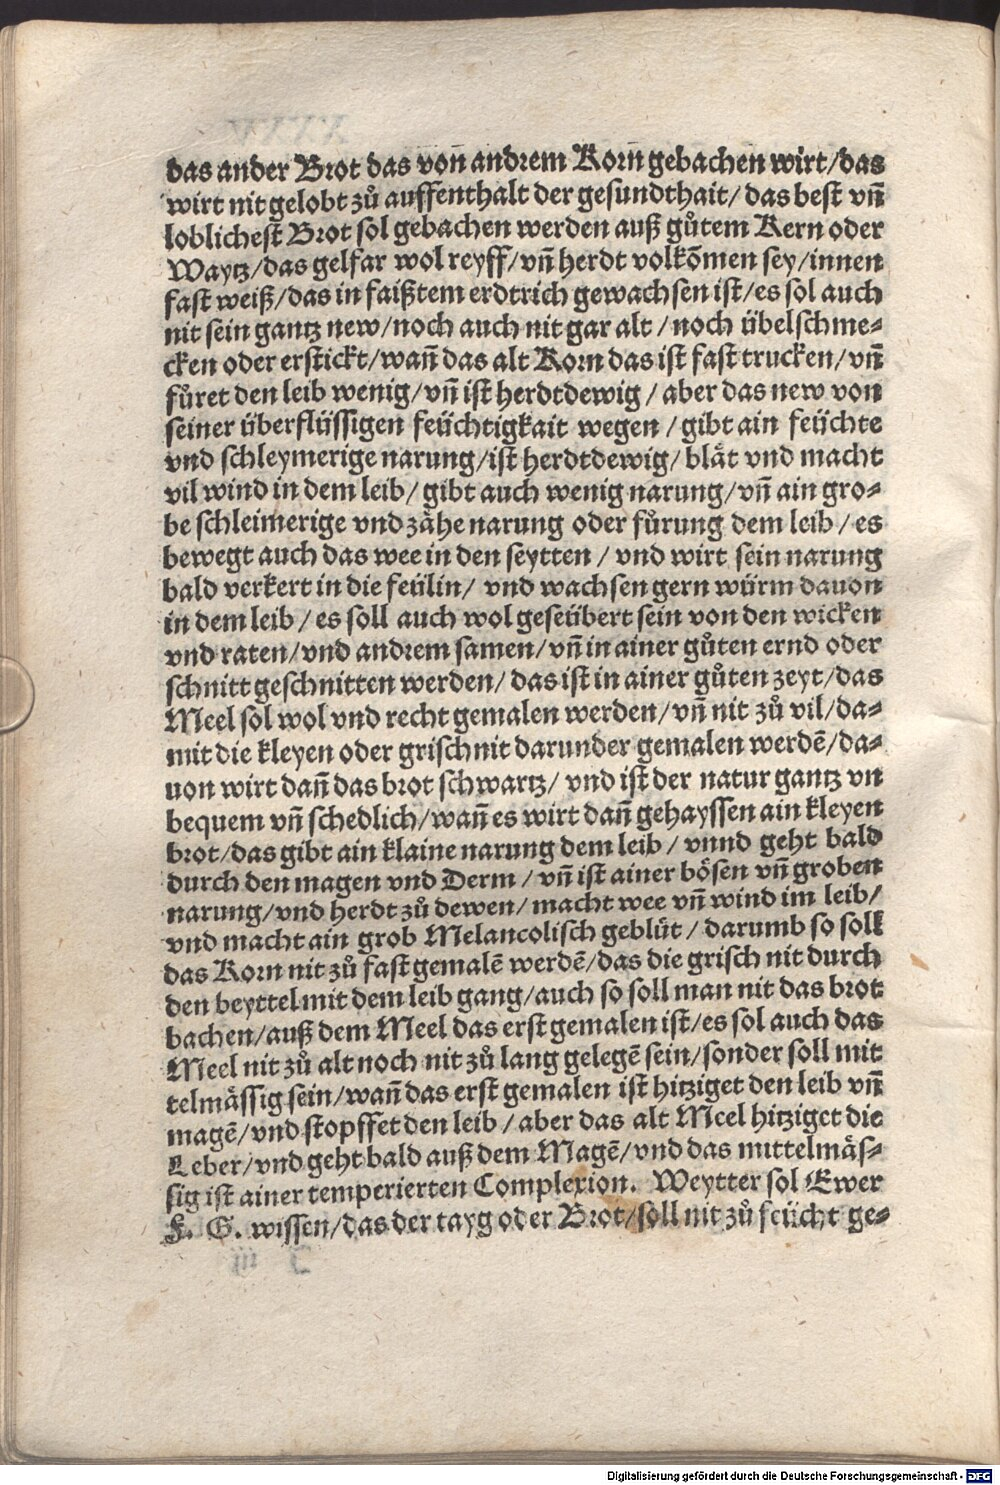 das ander Brot das von̄ andrem Korn̄ gebachen wirt/das
wirt nit gelobt zů auffenthalt der gesundthait/ das best vn̄
loblichest Brot sol gebachen werden auß gůtem Kern oder
Waytz/das gelfar wol reyff/vn̄ herdt volkōmen sey/innen
fast weiß/das in faißtem erdtrich gewachsen ist/es sol auch
nit sein gantz new/noch auch nit gar alt/noch übelschme⸗
cken oder erstickt/wan̄ das alt Korn das ist fast trucken/vn̄
fůret den leib wenig/vn̄ ist herdtdewig/ aber das new von
seiner überflüssigen feüchtigkait wegen/gibt ain feüchte
vnd schleymerige narung/ist herdtdewig/ blät vnd macht
vil wind in dem leib/ gibt auch wenig narung/vn̄ ain gro⸗
be schleimerige vnd zähe narung oder fůrung dem leib/es
bewegt auch das wee in den seytten/ vnd wirt sein narung
bald verkert in die feülin/ vnd wachsen gern würm dauon
in dem leib/es soll auch wol geseübert sein von den wicken
vnd raten/vnd andrem samen/vn̄ in ainer gůten ernd oder
schnitt geschnitten werden/ das ist in ainer gůten zeyt/das
Meel sol wol vnd recht gemalen werden/vn̄ nit zů vil/da⸗
mit die kleyen oder grisch nit darunder gemalen werdē/da⸗
uon wirt dan̄ das brot schwartz/ vnd ist der natur gantz vn
bequem vn̄ schedlich/wan̄ es wirt dan̄ gehayssen ain kleyen
brot/das gibt ain klaine narung dem leib/ vnnd geht bald
durch den magen vnd Derm/vn̄ ist ainer bösen vn̄ groben
narung/vnd herdt zů dewen/ macht wee vn̄ wind im leib/
vnd macht ain grob Melancolisch geblüt/ darumb so soll
das Korn nit zů fast gemalē werdē/das die grisch nit durch
den beyttel mit dem leib gang/auch so soll man nit das brot
bachen/auß dem Meel das erst gemalen ist/es sol auch das
Meel nit zů alt noch nit zů lang gelegē sein/sonder soll mit
telmässig sein/wan̄ das erst gemalen ist hitziget den leib vn̄
magē/vnd stopffet den leib/aber das alt Meel hitziget die
Leber/vnd geht bald auß dem Magē/vnd das mittelmäs⸗
sig ist ainer temperierten Complexion. Weytter sol Ewer
F. G. wissen/das der tayg oder Brot/soll nit zů feücht ge⸗
Digitalisierung gefördert durch die Deutsche Forschungsgemeinschaft - DFG